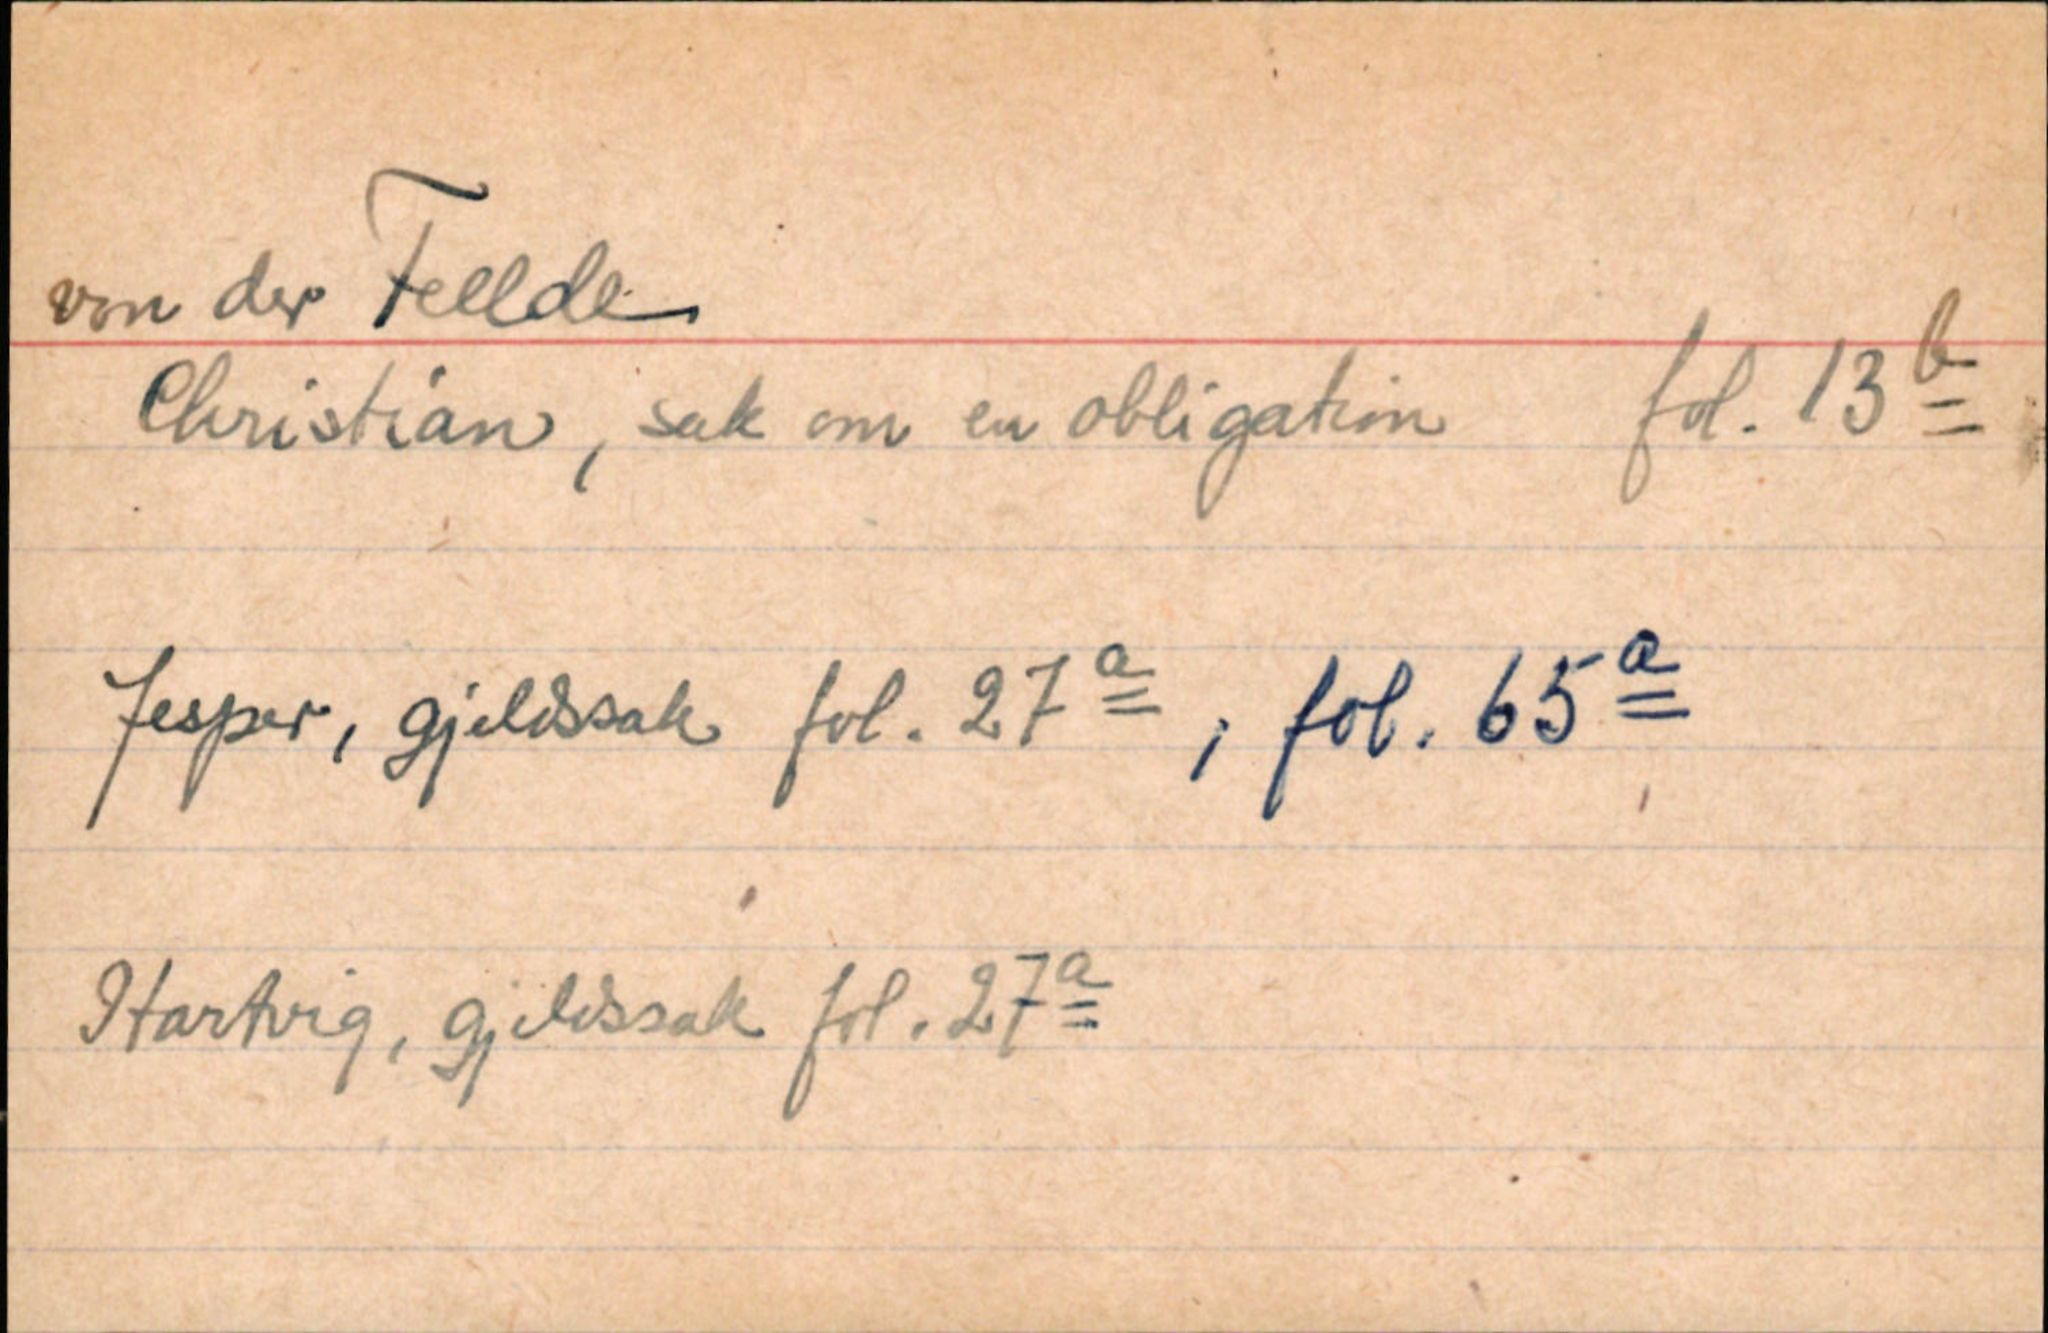 von der Fellde
Christian, sak om en obligation fol. 13b
Jesper, gjeldssak fol. 27a, fol. 65a
Hartvig, gjeldssak fol. 27a